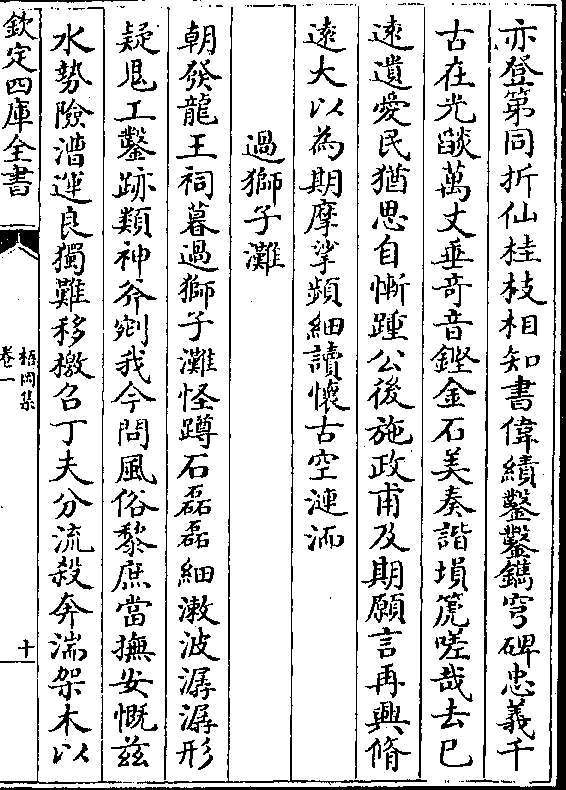 亦登第同折仙桂枝相知書偉績鑿鑿鐫穹碑忠義千
古在光燄萬丈垂奇音鏗金石美奏諧塤箎嗟哉去已
遠遺愛民猶思自慚踵公後施政甫及期願言再興脩
遠大以為期摩挲頻細讀懷古空漣洏
過獅子灘
朝發龍王祠暮過獅子灘怪蹲石磊磊細漱波潺潺形
疑鬼工鑿跡類神斧剜我今問風俗黎庶當撫安慨茲
水勢險漕運良獨難移檄召丁夫分流殺奔湍架木以
欽定四庫全書
梧岡集
卷一
十